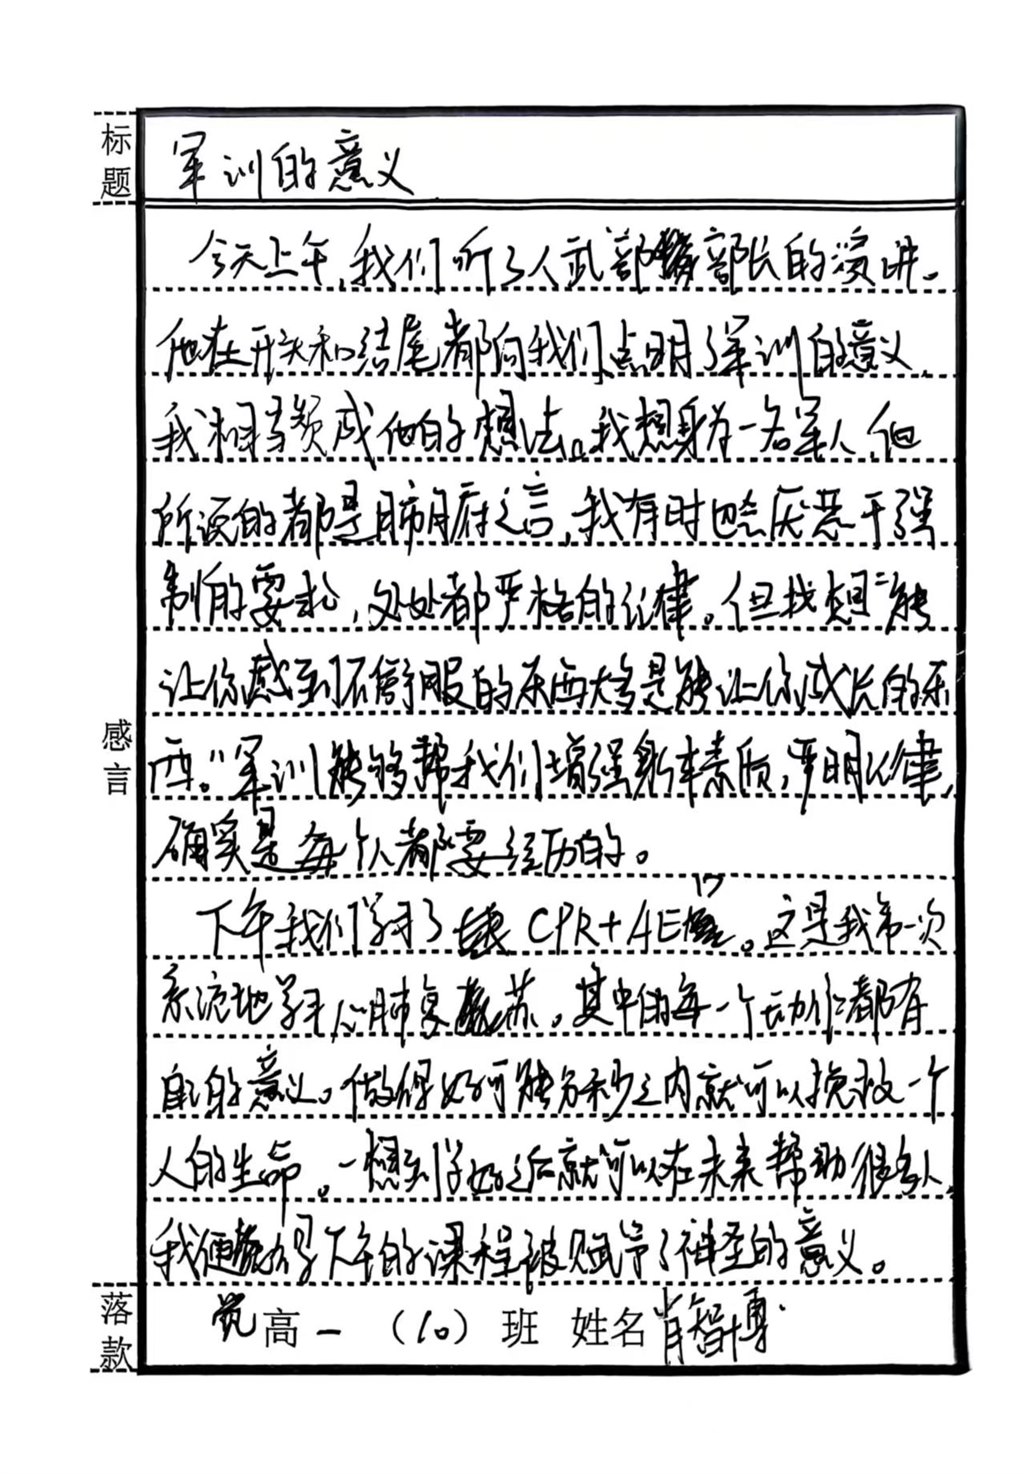 标题
军训的意义
今天上午,我们听了人武部部长的演讲。
他在开头和结尾都向我们点明了军训的意义,
我相当赞成他的想法。我想身为一名军人,他
所说的都是肺腑之言,我有时也会厌恶于强
制的要求,处处都严格的纪律。但我想“能
让你感到不舒服的东西大多是能让你成长的东
西。”军训能够帮我们增强身体素质,严明纪律,
确实是每个人都要经历的。
下午我们学习了CPR+AED。这是我第一次
系统地学习心肺复苏。其中的每一个动作都有
自己的意义。做得好可能分秒之内就可以挽救一个
人的生命。一想到学好之后就可以在未来帮助很多人,
我便觉得下午的课程被赋予了神圣的意义。
感言
落款
高一(10)班 姓名肖智博